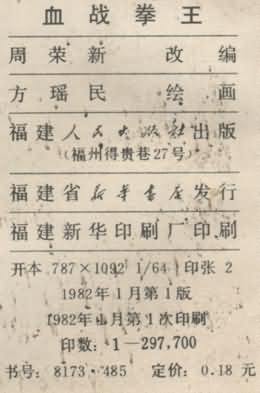 血战拳王
周荣新 改编
方瑶民 绘画
福建人民出版社出版
(福州得贵巷27号)
福建省新华书店发行
福建新华印刷厂印刷
开本 787×1092 1/64 印张 2
1982年1月第1版
1982年1月第1次印刷
印数: 1—297,700
书号: 8173·485 定价: 0.18 元